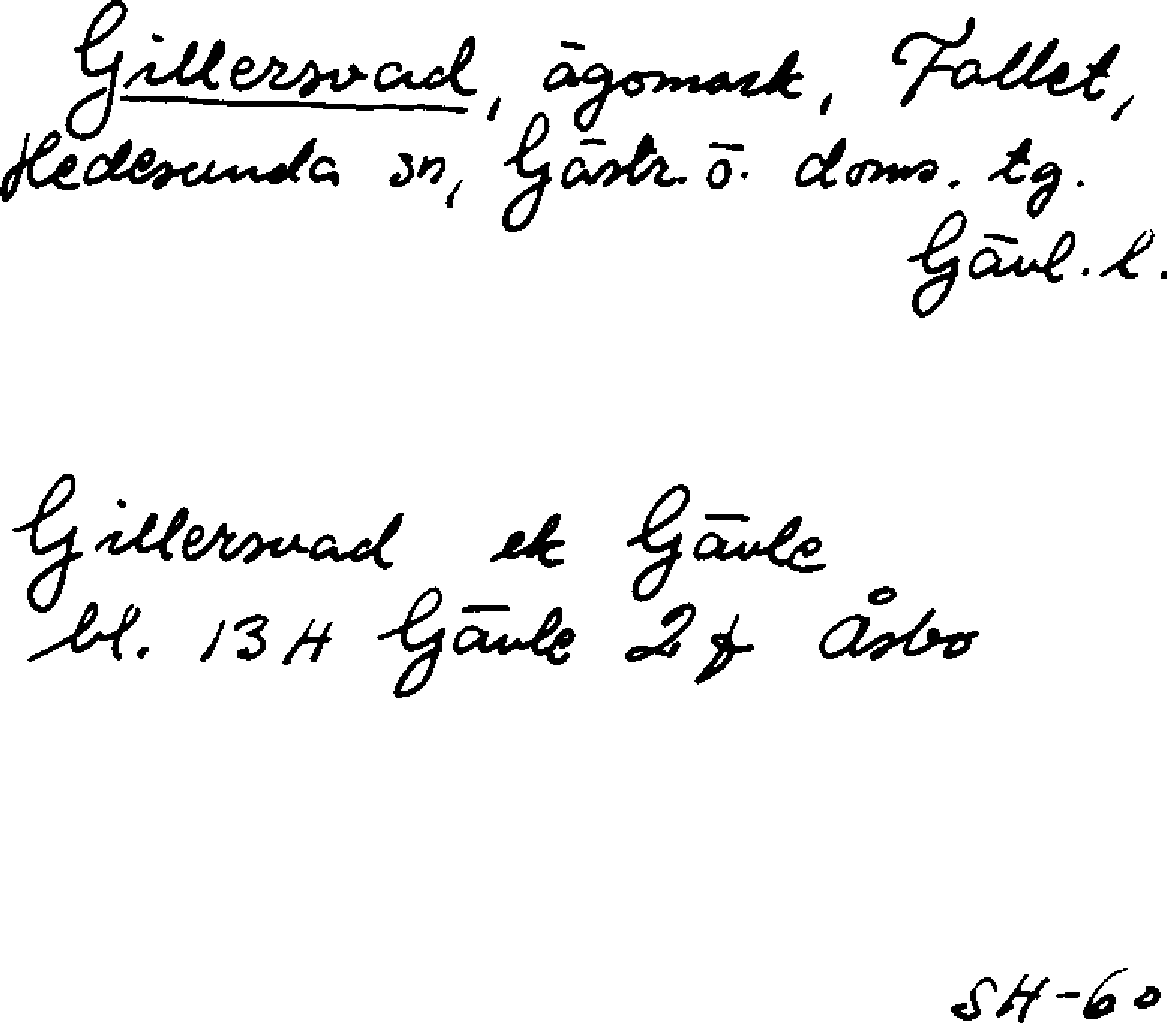 Gillersvad, ägomark, Fallet,
Hedesunda sn, Gästr. ö. doms. tg.
Gävl. l.
Gillersvad ek Gävle
bl. 13 H Gävle 2 f Åsbo
SH-60